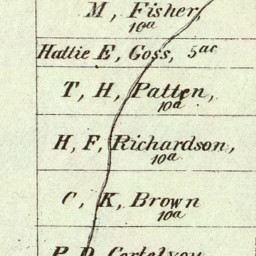 M, Fisher,
10a
Hattie E, Goss, 5ac
T, H, Patten,
10a
H, F, Richardson,
10a
C, K, Brown
10a
P. D. Cortelyou